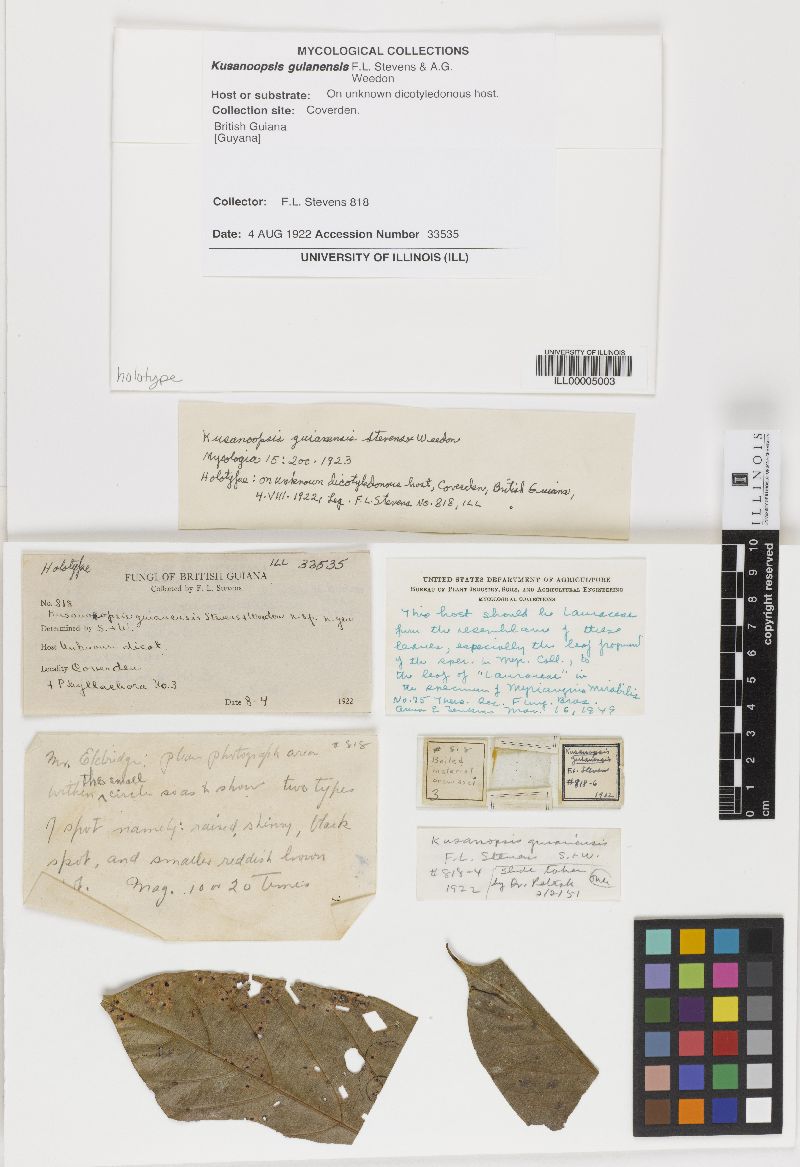 MYCOLOGICAL COLLECTIONS
Kusanoopsis guianensis F.L. Stevens & A.G.
Weedon
Host or substrate: On unknown dicotyledonous host.
Collection site: Coverden.
British Guiana
[Guyana]
Collector: F.L. Stevens 818
Date: 4 AUG 1922 Accession Number 33535
UNIVERSITY OF ILLINOIS (ILL)
holotype
UNIVERSITY OF ILLINOIS
ILL00005003
Kusanoopsis guianensis Stevens & Weedon
Mycologia 15: 200. 1923
Holotype: on unknown dicotyledonous host, Coverden, British Guiana,
4.VIII.1922, Leg. F.L. Stevens No. 818, ILL
ILLINOIS
Holotype ILL 33535
FUNGI OF BRITISH GUIANA
Collected by F. L. Stevens
No. 818
Kusanoopsis guianensis Stevens & Weedon n. sp. n. gen
Determined by S. & W.
Host Unknown dicot
Locality Coverden
+ Phyllachora No. 3
Date 8-4 1922
UNITED STATES DEPARTMENT OF AGRICULTURE
BUREAU OF PLANT INDUSTRY, SOILS, AND AGRICULTURAL ENGINEERING
MYCOLOGICAL COLLECTIONS
This host should be Lauraceae
from the resemblance of these
leaves, especially the leaf fragment
of the spec. in Myc. Coll., to
the leaf of "Lauraceae" in
the specimen of Myriangium mirabilis
No. 35 Theis. Dec. Fung. Bras.
Anna E. Jenkins Mar. 16, 1949
# 818
Mr. Eldridge: please photograph area
within the small circle so as to show two types
of spot namely: raised, shinny, black
spot, and smaller reddish brown
Mag. 10 or 20 times
# 818
Boiled
material
crushed
3
Kusanoopsis
guianensis
F.L. Stevens
# 818-6
1922
Kusanopsis guianensis
F.L. Stevens S. + W.
# 818-4 Slide taken
1922 by Dr. Petrak
2/2/51
0 1 2 3 4 5 6 7 8 9 10
cm
copyright reserved